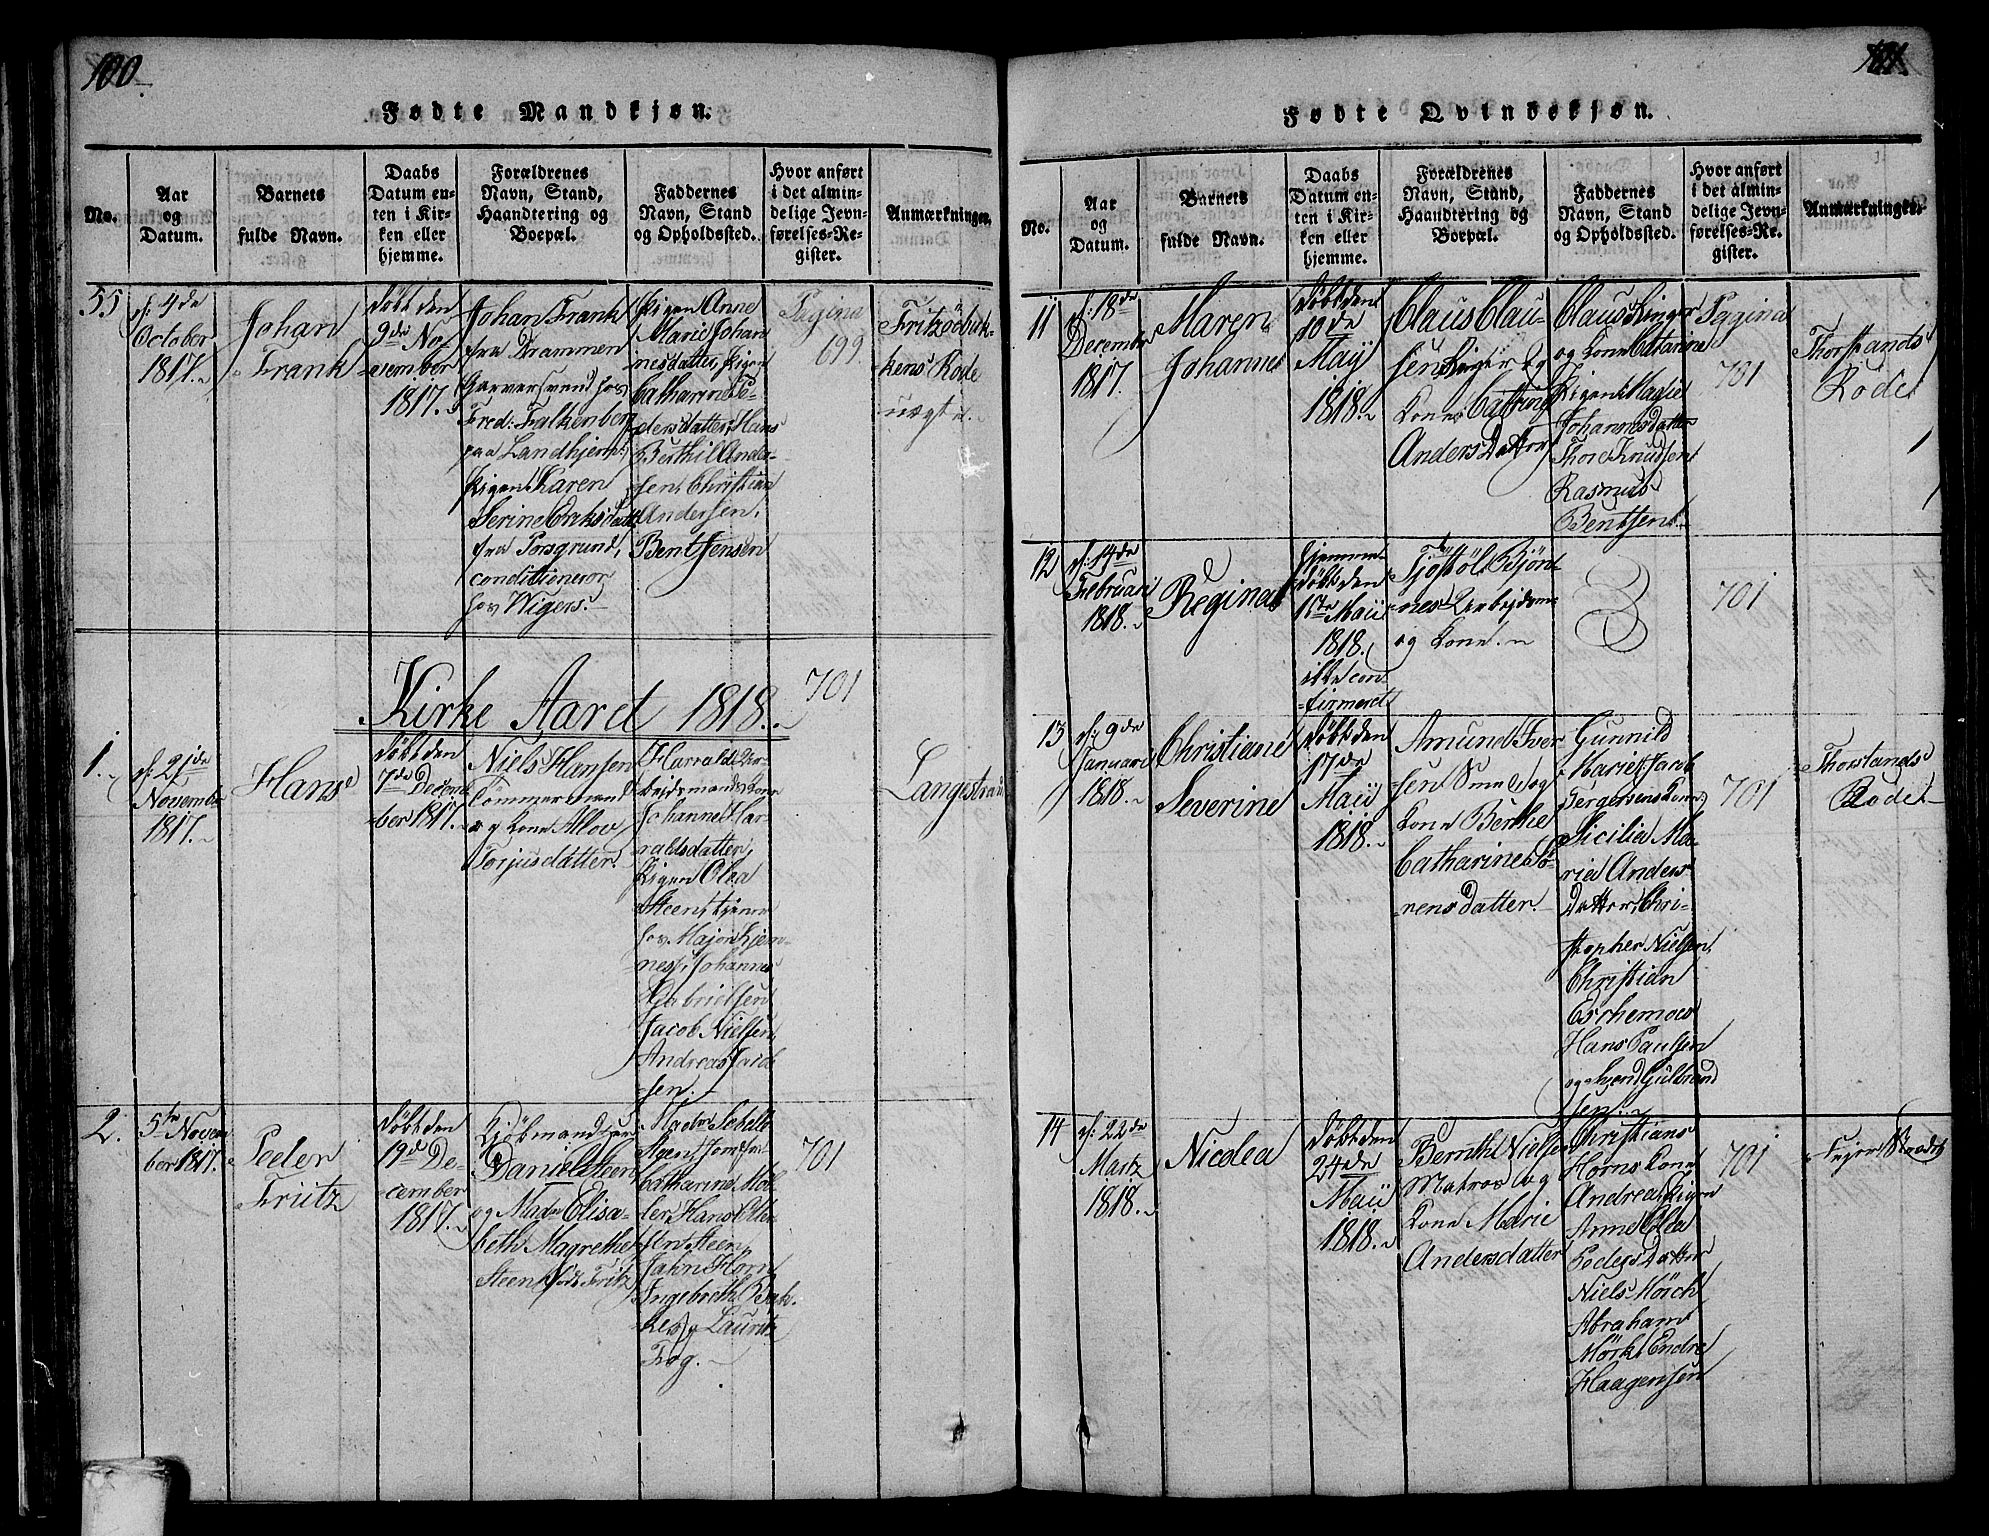 100.
Fødte Mandkjøn.
No.
Aar
og
Datum.
Barnets
fulde Navn.
Daabs
Datum en-
ten i Kir-
ken eller
hjemme.
Forældrenes
Navn, Stand,
Haandtering og
Boepæl.
Faddernes
Navn, Stand
og Opholdssted.
Hvor anført
i det almin-
delige Jevn-
førelses-Re-
gister.
Anmærkninger.
55
d: 4de
October
1817.
Johan
Frank
døbt den
9de No-
vember
1817.
Johan Frank
fra Drammen
Garversvend hos
Fred: Falkenberg
paa Landhjem
Pigen Karen
Serine Eriksdatt
fra Porsgrund,
conditionerer
hos Wigers.
Pigen Anne
Marie Johan
nesdatter, Pigen
Catharine Pe-
dersdatter, Hans
Berthil Ander-
sen, Christian
Andersen,
Bent Jensen
Pagina
699.
Fritzöebak-
kens Rode
uægte
Kirke Aaret 1818.
701
1.
d: 27de
November
1817.
Hans
døbt den
7de Decem
ber 1817.
Niels Hansen
Tömmermand
og Kone Allow
Torjusdatter.
Harrald Ar-
beidsmands Kone
Johanne Har-
raldsdatter,
Pigen Olea
Steen, tjener
hos Major Hjem-
nes, Johannes
Gabrielsen
Jacob Nielsen
Andreas Jacob
sen.
Langestran
2.
5te Novem
ber 1817.
Peder
Fritz
døbt den
19de De-
cember
1817.
Kjöbmand Herr
Daniel Steen
og Madm Elisa-
beth Magrethe
Steen föd Fritz
Madm Sobelle
Agent Jomfru
Catharine Möl-
ler, Hans Elle-
fsen Steen,
Jahn Horn
Ingebreth Bak-
ke og Lauritz
Fog.
701
101.
Fødte Qvindekjøn.
No.
Aar
og
Datum.
Barnets
fulde Navn.
Daabs
Datum en-
ten i Kir-
ken eller
hjemme.
Forældrenes
Navn, Stand,
Haandtering og
Boepæl.
Faddernes
Navn, Stand
og Opholdssted.
Hvor anført
i det almin-
delige Jevn-
førelses-Re-
gister.
Anmærkninger.
11
d: 18de
December
1817.
Maren
Johanne
døbt den
10de
Maij
1818.
Claus Clau-
sen Ringer og
Kone Catrine
Anders Datter
Claus Ringer
og Kone Catarine
Pigen Magie
Johannesdatter
Thor Knudsen
Rasmus
Bentsen
Pagina
701
Thorstrands
Rode
12
d: 14de
Februari
1818.
Regine
hjemme
døbt den
11te Maii
1818.
ikke con-
firmeret
Tjöstöl Björn-
nes Arbejdsm
og Kone
701
13
d: 9de
Januari
1818.
Christiane
Severine
døbt den
17de
Maij
1818.
Amund Iver
sen Smed og
Kone Berthe
Catharine Sö-
rensdatter.
Gunnild
Marie Jacob
Bergersens Kone
Sicilia Ma-
ria Anders
Datter, Chri-
stopher Nielsen,
Christian
Eschemoes
Hans Paulsen
og Svend Guldbrand
sen.
701
Thorstands
Rode
14
d: 22de
Martz
1818.
Nicolea
døbt den
24de
Maij
1818.
Bernth Nielsen
Matros og
Kone Marie
Andersdatter
Christians
Horns Kone
Andrea, Pigen
Anne Olea
Peders Datter
Niels Mörch
Abraham
Mörk, Endre
Haagensen
701